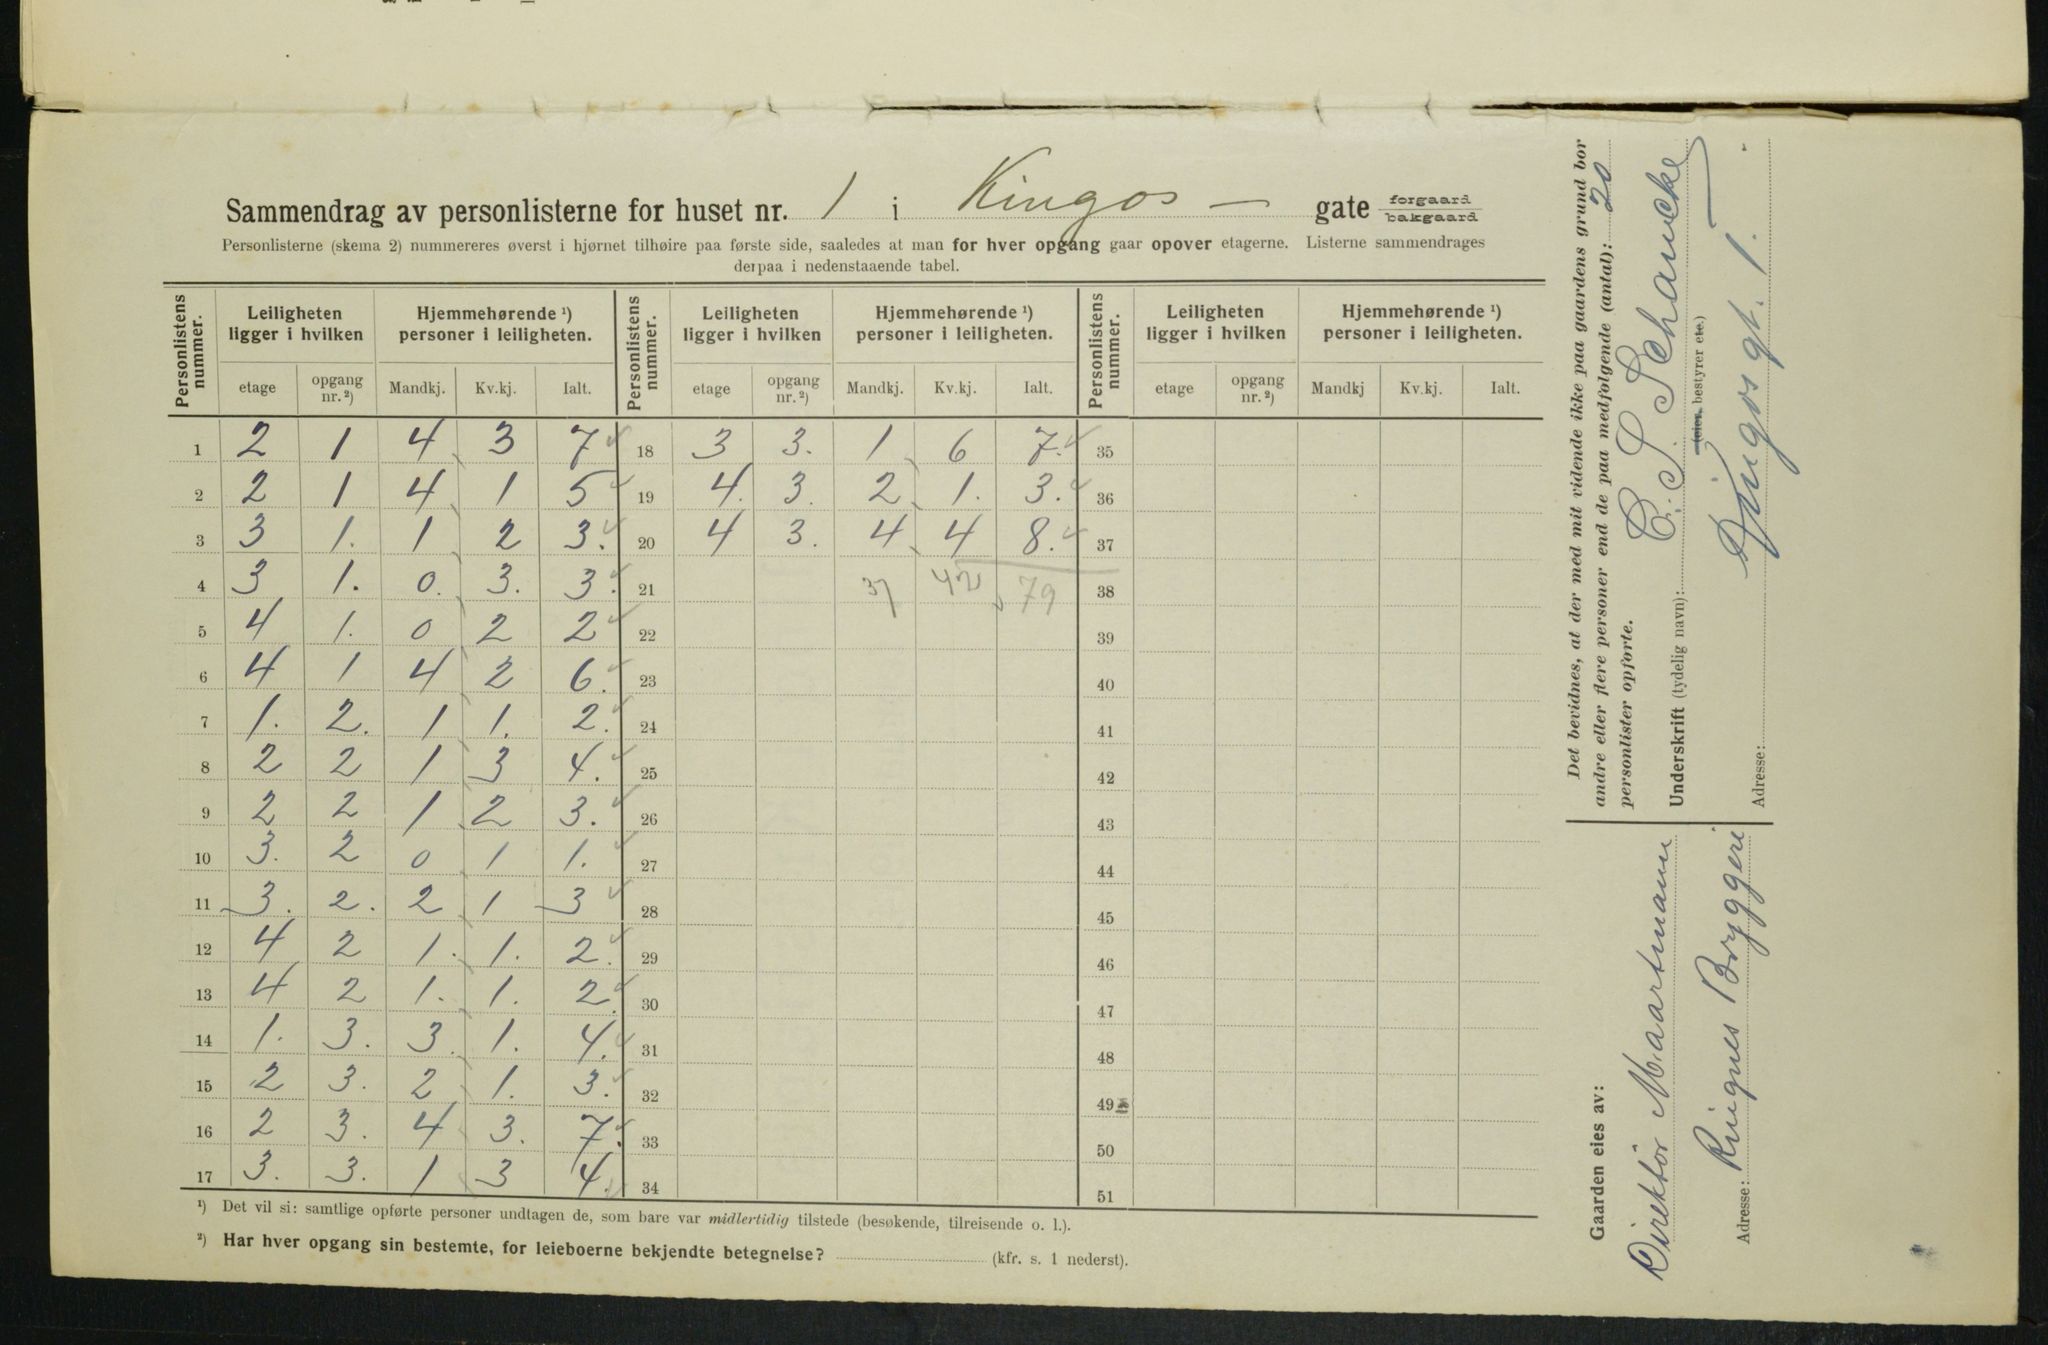 Sammendrag av personlisterne for huset nr. 1 i Kingos — gate forgaard bakgaard
Personlisterne (skema 2) nummereres øverst i hjørnet tilhøire paa første side, saaledes at man for hver opgang gaar opover etagerne. Listerne sammendrages
derpaa i nedenstaaende tabel.
Personlistens nummer. Leiligheten ligger i hvilken Hjemmehørende ¹) personer i leiligheten. Personlistens nummer. Leiligheten ligger i hvilken Hjemmehørende ¹) personer i leiligheten. Personlistens nummer. Leiligheten ligger i hvilken Hjemmehørende ¹) personer i leiligheten.
etage opgang nr. ²) Mandkj. Kv.kj. Ialt. etage opgang nr. ²) Mandkj. Kv.kj. Ialt. etage opgang nr. ²) Mandkj Kv.kj. Ialt.
1 2 1 4 3 7 18 3 3. 1 6 7. 35
2 2 1 4 1 5 19 4. 3. 2 1. 3. 36
3 3 1. 1 2 3. 20 4 3. 4 4 8. 37
4 3 1. 0. 3. 3. 21 37 42 79 38
5 4 1. 0 2 2 22 39
6 4 1 4 2 6. 23 40
7 1. 2. 1 1. 2. 24 41
8 2 2 1 3 4. 25 42
9 2 2 1 2 3. 26 43
10 3. 2 0 1 1. 27 44
11 3. 2. 2 1 3 28 45
12 4 2 1. 1. 2. 29 46
13 4 2 1. 1. 2. 30 47
14 1. 3. 3. 1. 4. 31 48
15 2 3. 2 1. 3. 32 49
16 2 3. 4 3. 7. 33 50
17 3. 3. 1 3 4. 34 51
¹) Det vil si: samtlige opførte personer undtagen de, som bare var midlertidig tilstede (besøkende, tilreisende o. l.).
²) Har hver opgang sin bestemte, for leieboerne bekjendte betegnelse? (kfr. s. 1 nederst).
Det bevidnes, at der med mit vidende ikke paa gaardens grund bor
andre eller flere personer end de paa medfølgende (antal): 20
personlister opførte.
Underskrift (tydelig navn): C. S. Schancke
(eier, bestyrer etc.)
Adresse: Kingosgt. 1.
Gaarden eies av:
Direktör Maartmann
Adresse: Ringnes Bryggeri